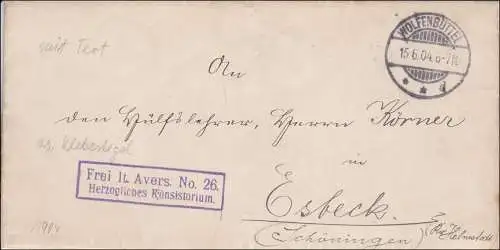 mit Text
WOLFENBÜTTEL
15.6.04.6-7N.
* * d
An
den Hülfslehrer, Herrn Körner
rs. Klebesiegel
in
Frei lt. Avers. No. 26.
Herzogliches Konsistorium.
Esbeck
(Schöningen)
Kr. Helmstedt
1904